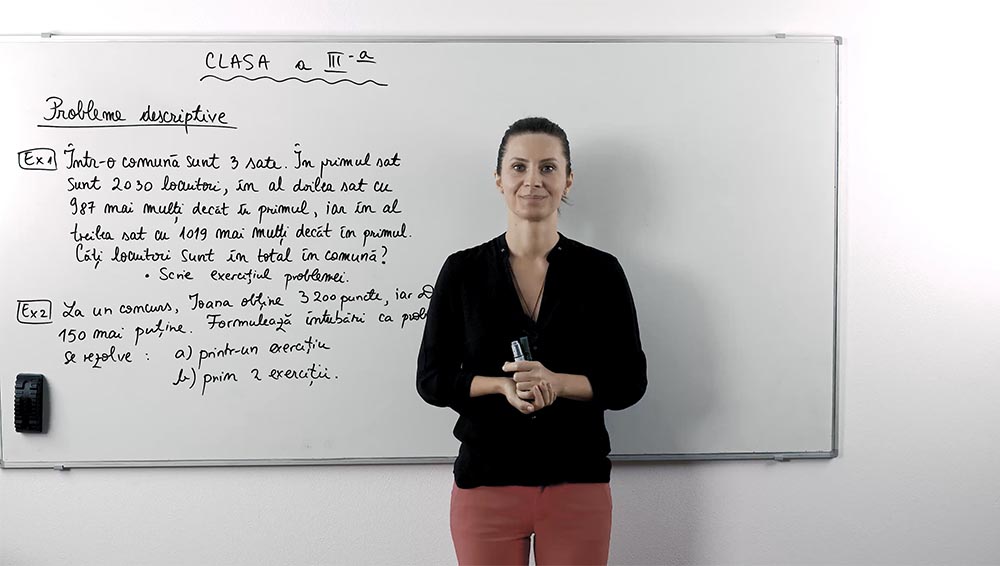 CLASA a III-a
Probleme descriptive
Ex1 Într-o comună sunt 3 sate. În primul sat
sunt 2030 locuitori, în al doilea sat cu
987 mai mulți decât în primul, iar în al
treilea sat cu 1019 mai mulți decât în primul.
Câți locuitori sunt în total în comună?
• Scrie exercițiul problemei.
Ex2 La un concurs, Ioana obține 3200 puncte, iar
150 mai puține. Formulează întrebări ca
se rezolve : a) printr-un exercițiu
b) prin 2 exerciții.